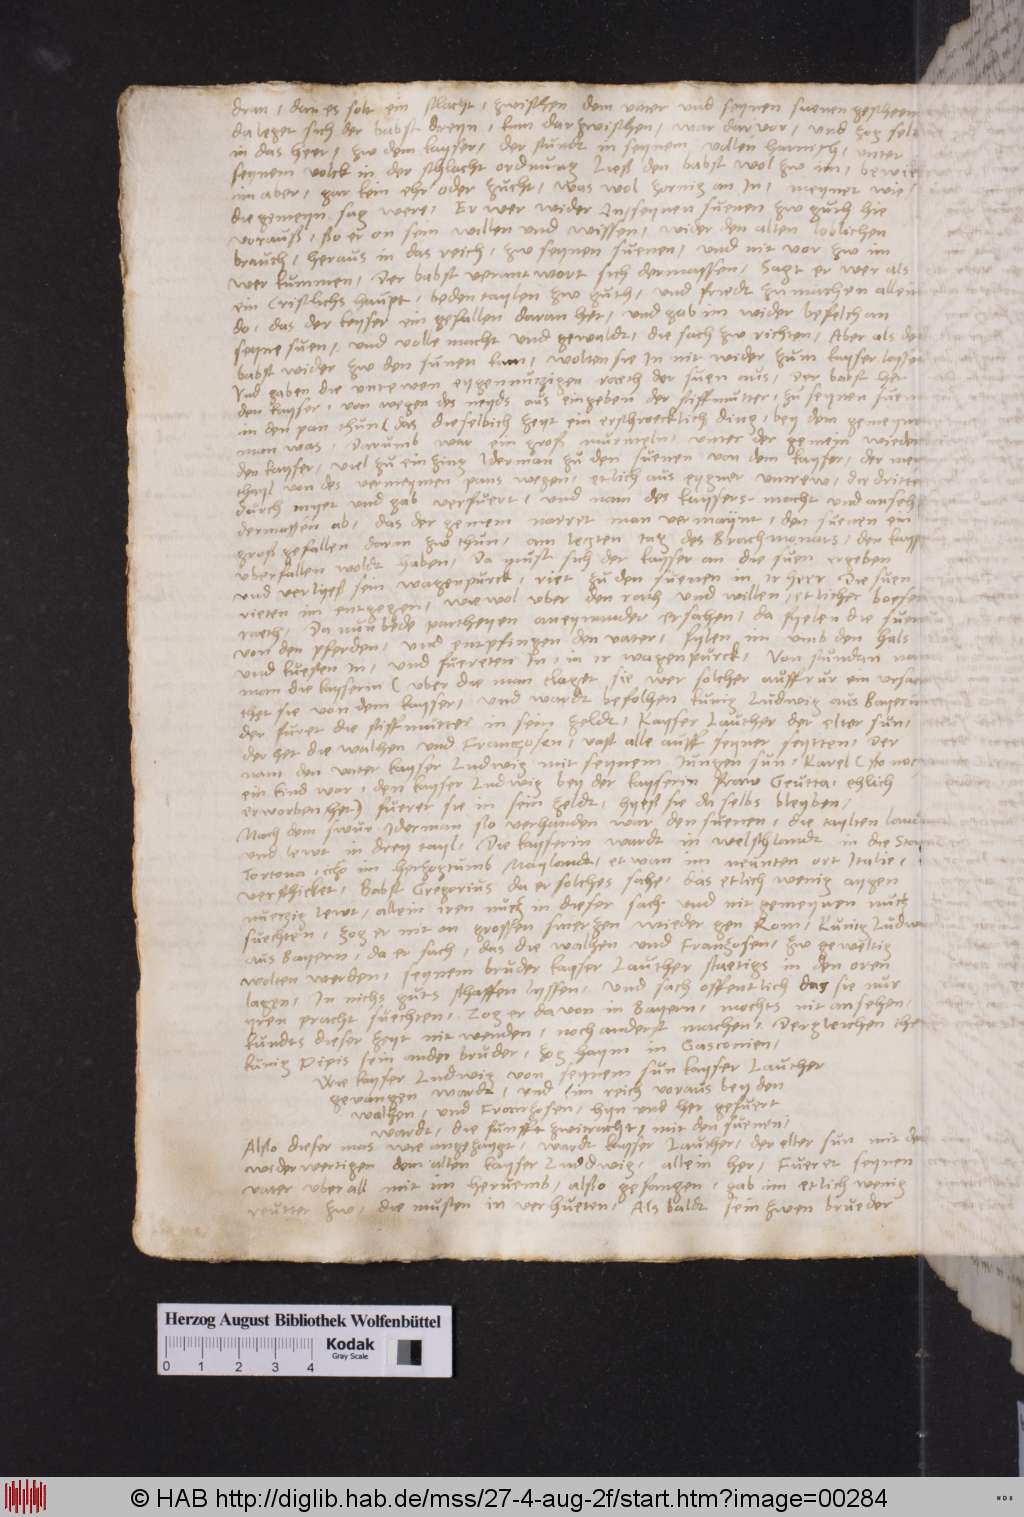 dran, dan es solt ein schlacht, zwischen dem vater und seynen suenen gescheen
da leget sich der babst dreyn, kam dar zwischen, war dar vor, und zog selb
in das heer, zw dem kayser, der stundt in seynem vollen harnisch, unter
seynem volck in der schlacht ordnung Ließ den babst wol zw im, bewiß
im aber, gar kein ehr oder zucht, was wol zornig an In, meynet wie
die gemeyn sag were, Er wer wider In, seynen suenen zw zuch hie
voraus, so er on sein willen und wissen, wider den alten loblichen
brauch, heraus in das reich, zw seynen suenen, und nit vor zw im
wer kummen, Der babst verantwort sich dermassen, Sagt er wer als
ein Cristlichs haupt, beden taylen zw guth, und friedt zu machen allein
do, das der keyser ein gefallen daran het, und gab im wider befelch an
seyne suen, und volle macht und gewaldt, die sach zw richten, Aber als der
babst wider zw den sunen kam, wolten sie In nit wider zum kayser lassen
Und gaben die untrewen eygennutzigen raeth der suen aus, Der babst het
den kayser, von wegen des neyds aus eingeben der stiffmutter, zu seynen suen
in den pan thun (das dieselbich zeyt ein erschrecklich ding, bey dem gemeyn
man was, Darumb war ein groß murmeln, unter der gemein wieder
den kayser, viel zu einzing Iderman zu den suenen von dem kayser, der mer
thayl von des vermeynten pans wegen, etlich aus eygner untrew, die dritten
durch myet und gab verfuert, und nam des kaysers macht und ansehen
dermassen ab, das der gemein narret man vermaynt, den suenen ein
groß gefallen daran zw thun, am letzten tag des Brachmonats, den kayser
uberfallen woldt haben, Da must sich der kayser an die suen ergeben
und verließ sein wagenpurck, riet zu den suenen in ir heer Die suen
rieten im entgegen, wiewol uber den rath und willen, etlicher boesen
raeth, Da nun bede partheyen aneynander ersahen, da fyelen die suen
von den pferden, und entpfingen den vater, fylen im umb den hals
und kuesten In, und fuereten In, in ir wagenpurck, Von stundan nam
man die kayserin (uber die man claget sie wer solcher auffrur ein ursach
thet sie von dem kayser, und wardt befolhen kunig Ludwig aus Bayern
der furet die stiffmutter in sein zeldt, Kayser Lauther der elter sun,
der het die walhen und Franzosen, vast alle auff seyner seytten, Der
nam den vater kayser Ludwig mit seynem Jungen sun, Karel (so noch
ein kind war, den kayser Ludwig bey der kayserin fraw Geutta, ehlich
erworben het) fuerer sie in sein zeldt, hyeß sie da selbs bleyben,
Nach dem swur Iderman so verhanden war den suenen, die taylten landt
und lewt in drey tayl, Die kayserin wardt in welschlandt in die Stat
Tortona, itzo im herzogtumb Maylandt, etwan im neunten ort Italie,
verschicket, Babst Gregorius da er solches sahe, das etlich wenig aygen
nuetzig lewt, allein iren nutz in dieser sach und nit gemeynen nutz
suechten, zog er mit on grossen smerzen wieder gen Rom, Kunig Ludwig
aus Bayern, da er sach, das die walhen und Franzosen, zw geweltig
wolten werden, seynem bruder kayser Lauther staetigs in den oren
lagen, In nichs guts schaffen lyssen, und sach offentlich das sie nur
yren pracht suechten, Zog er davon in Bayern, mochts nit ansehen,
kundts dieser zeyt nit wenden, noch anderst machen, Dergleichen thet
kunig Pipis sein ander bruder, zog haym in Gasconien,
Wie kayser Ludwig von seynem sun kayser Lauther
gevangen wardt, und im reich voraus bey den
walhen, und Franzosen, hyn und her gefuert
wardt, die funfft zwitracht, mit den suenen,
Also dieser mas wie angezaygt, wardt kayser Lauther, der elter sun mit dem
wederwertigen dem alten kayser Luddwig, allein her, Fueret seynen
vater uberall mit im herumb, also gefangen, gab im etlich wenig
reutter zw, die musten in verhueten, Als baldt sein zwen brueder
Herzog August Bibliothek Wolfenbüttel
Kodak
Gray Scale
0 1 2 3 4
© HAB http://diglib.hab.de/mss/27-4-aug-2f/start.htm?image=00284